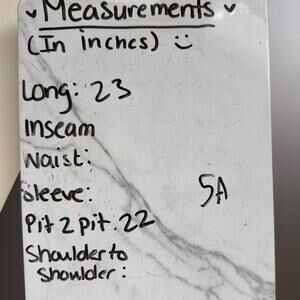 Measurements
(In inches) :)
Long: 23
Inseam
Waist:
Sleeve:
5A
Pit 2 pit: 22
Shoulder to
Shoulder: